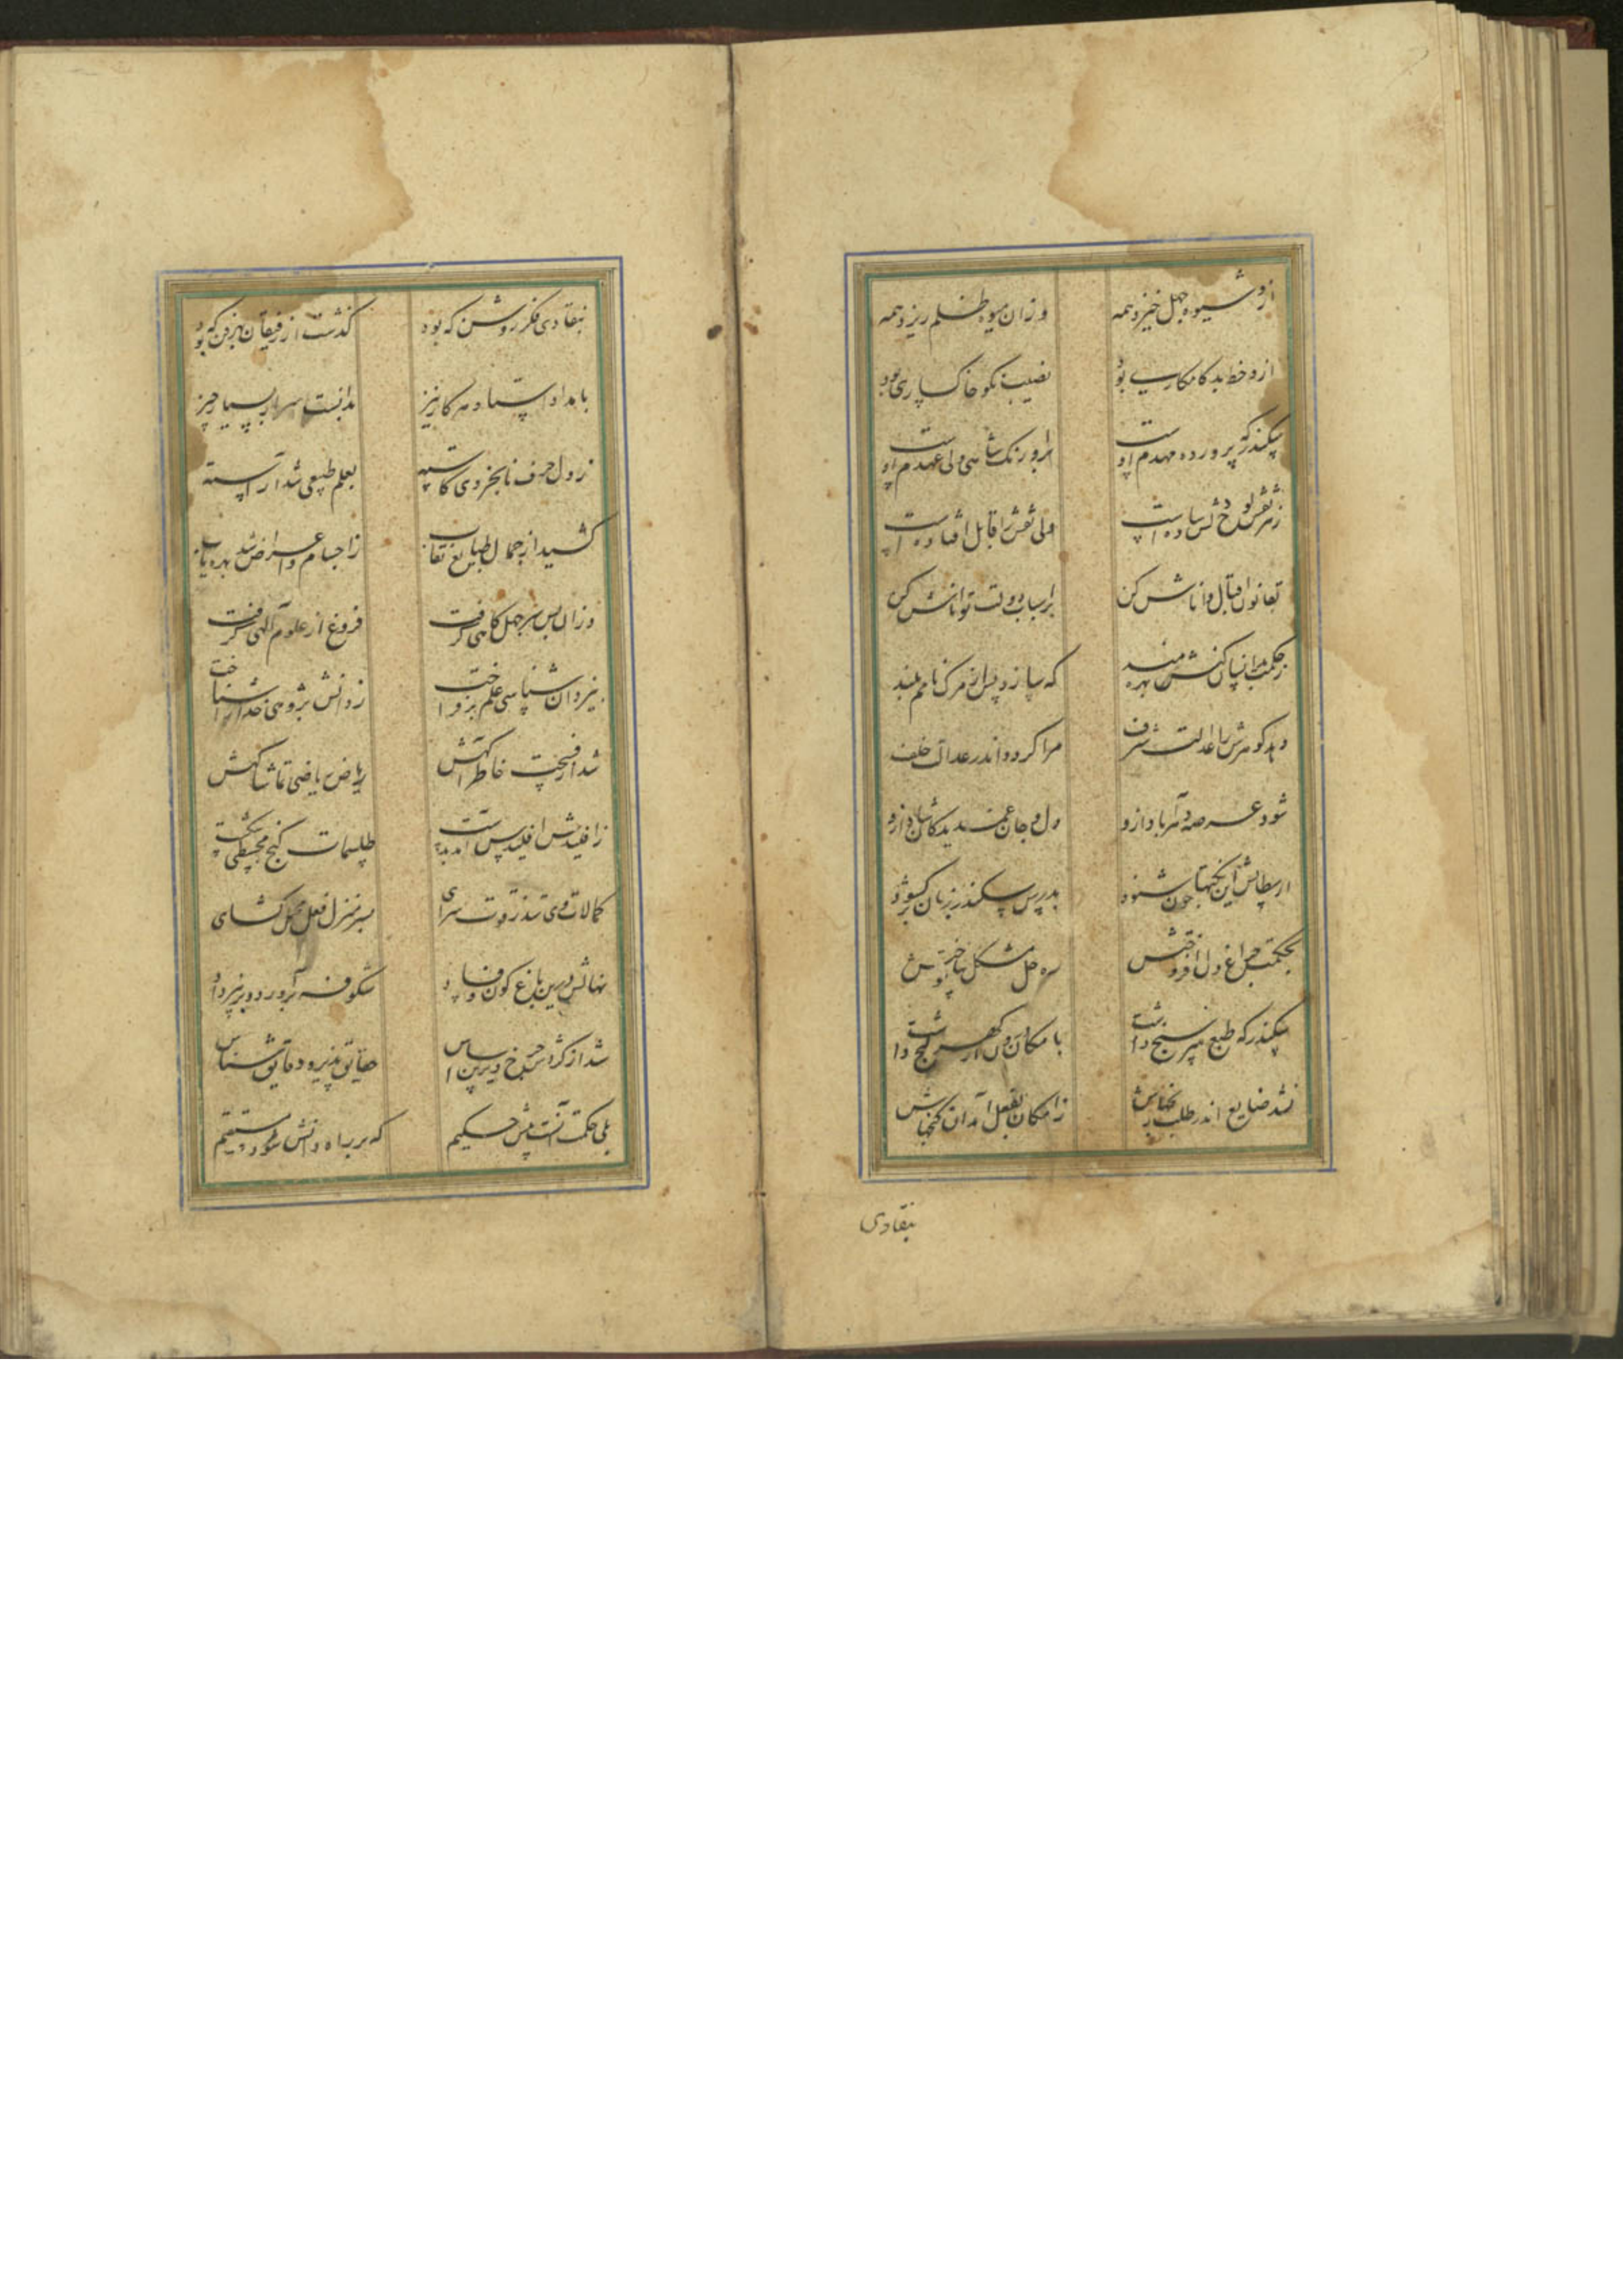 ازو شیوه جهل خیزد همه وزان میوه ظلم ریزد همه
ازو حظ بد کامکاری بود نصیب نکو خاکساری بود
سکندر که پرورده مهدم اوست بر اورنک شاهی ولی عهدم اوست
ز هر نقش لوح دلش ساده است ولی نقش را قابل افتاده است
بقانون اقبال داناش کن بر اسباب دولت تواناش کن
ز حکمت برانسان کنش بهره مند که سازد پس از مرک نامم بلند
دهد کوهرش را عدالت شرف مرا کردد اندر عدالت خلف
شود عرصه دهر آباد ازو دل و جان غمدیدکان شاد ازو
ارسطالس این نکتها چون شنود بدرس سکندر زبان برکشود
بحکمت چراغ دل افروختش ره حل مشکل بیاموختش
سکندر که طبع هنر سنج داشت بامکان درون از کهر کنج داشت
نشد ضایع اندر طلب رنجهاش ز امکان بفعل آمد آن کنجهاش
بنقادی
بنقادی فکر روشن که بود کذشت از رفیقان بهر فن که بود
بامداد استاد هر کار نیز بدانست اسرار بسیار چیز
ز دل حرف نابخردی کاسته بعلم طبیعی شد آراسته
کشید از جمال طبایع نقاب ز اجسام و اعراض شد بهره یاب
وزان پس سر جهل کاهی کرفت فروغ از علوم الهی کرفت
بیزدان شناسی علم برفراخت ز دانش پژوهی خدا را شناخت
شد از فسحت خاطر آکهش ریاض ریاضی تماشاکهش
ز اقلیدش اقلیدس آمد بدست طلسمات کنج مجسطی شکست
کمالات وی شد ز قوت سرای بسر منزل فعل محمل کشای
نهالش درین باغ کون و فساد شکوفه برآورد و بر نیز داد
شد از کردش چرخ دیرین اساس حقایق پذیر و دقایق شناس
بلی حکمت آنست پیش حکیم که بر راه دانش شود مستقیم